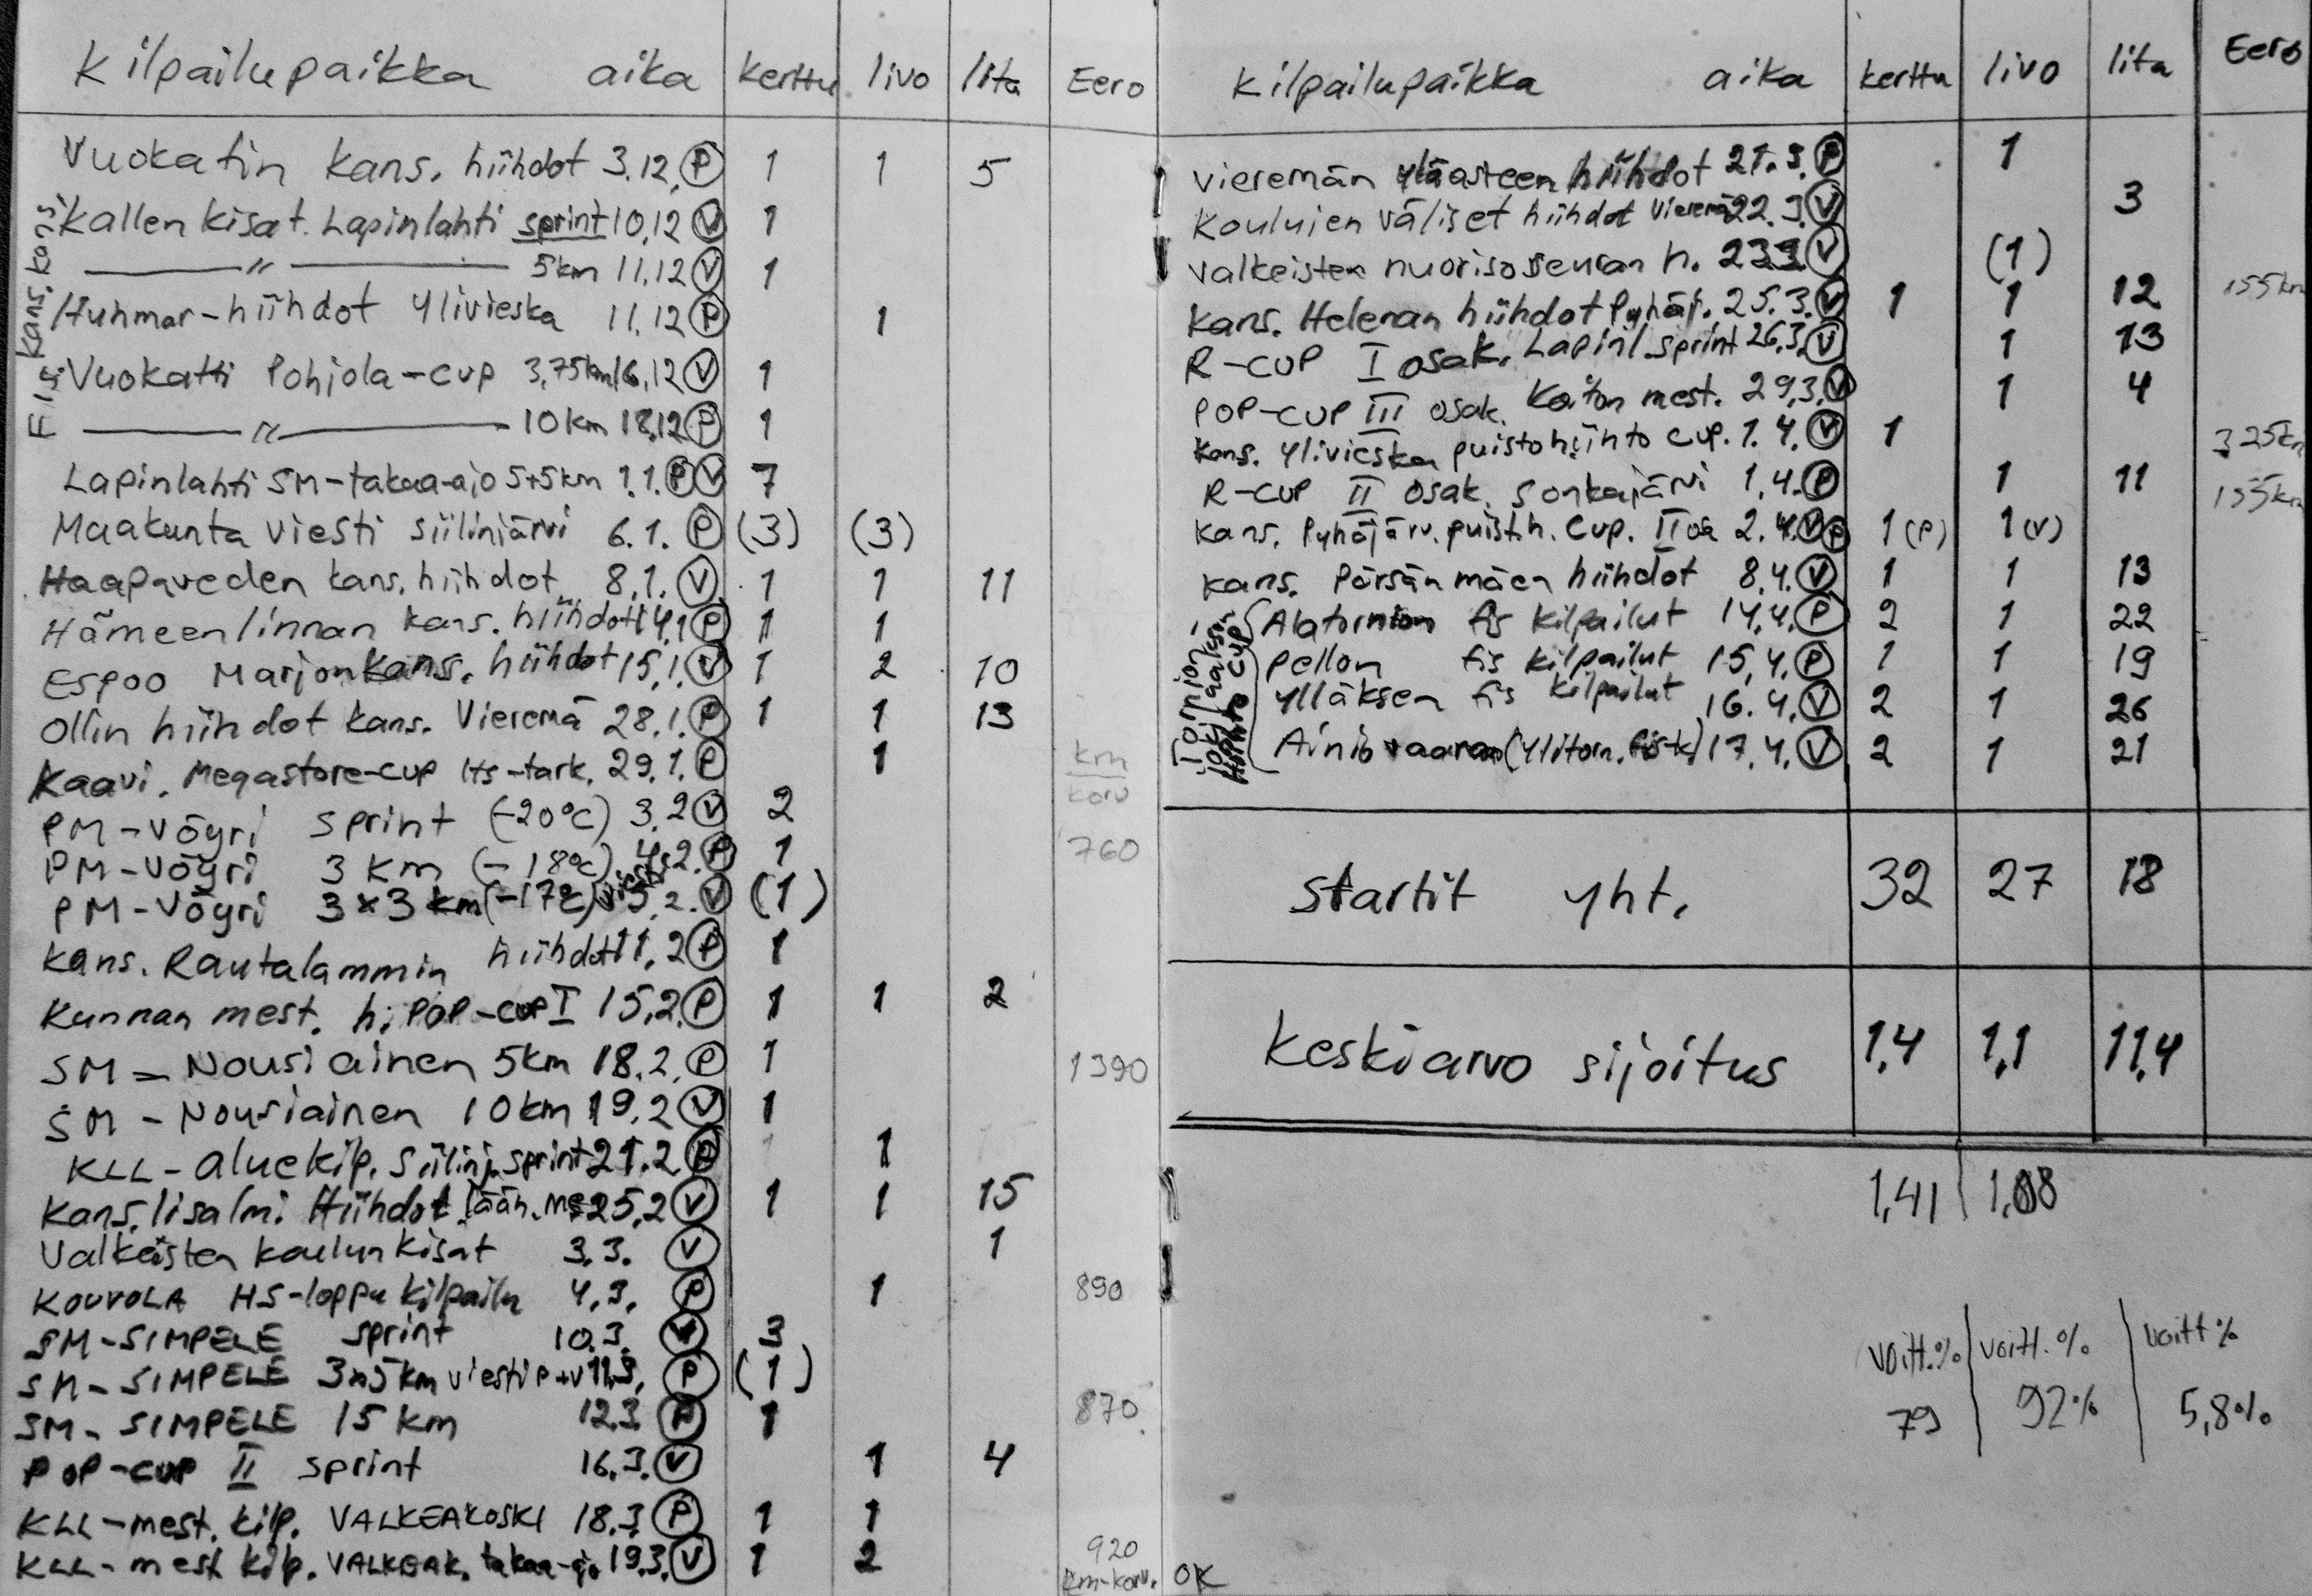 Kilpailupaikka aika Kerttu Iivo Iita Eero
Vuokatin kans. hiihdot 3.12. P 1 1 5
Kallen kisat. Lapinlahti sprint 10.12 V 1
〃 5km 11.12 V 1
Huhmar-hiihdot Ylivieska 11.12 P 1
Vuokatti Pohjola-cup 3,75km 16.12 V 1
〃 10km 18.12 P 1
Lapinlahti SM-takaa-ajo 5+5km 1.1. P V 7
Maakunta viesti Siilinjärvi 6.1. P (3) (3)
Haapaveden kans. hiihdot 8.1. V 1 1 11
Hämeenlinnan kans. hiihdot 14.1 P 1 1
Espoo Marjon kans. hiihdot 15.1. V 1 2 10
Ollin hiihdot kans. Vieremä 28.1. P 1 1 13
Kaavi. Megastore-cup Hs-tark. 29.1. P 1
km
korv
PM-Vöyri sprint (-20°C) 3.2 V 2
PM-Vöyri 3 km (-18°C) 4.2. P 1 760
PM-Vöyri 3x3 km (-17°C) viesti 5.2. V (1)
Kans. Rautalammin hiihdot 11.2 P 1
Kunnan mest. h. POP-cup I 15.2. P 1 1 2
SM-Nousiainen 5km 18.2. P 1 1390
SM-Nousiainen 10km 19.2 V 1
KLL-aluekilp. Siilinj. sprint 21.2 P 1
Kans. Iisalmi Hiihdot lään. me 25.2 V 1 1 15
Valkeisten koulun kisat 3.3. V 1
KOUVOLA HS-loppukilpailu 4.3. P 1 890
SM-SIMPELE sprint 10.3. V 3
SM-SIMPELE 3x5km viesti P+V 11.3. P (1)
SM-SIMPELE 15 km 12.3 P 1 870
POP-CUP II sprint 16.3. V 1 4
KLL-mest. kilp. VALKEAKOSKI 18.3. P 1 1
KLL-mest kilp. VALKEAK. takaa-ajo 19.3. V 1 2 920
km-korv.
Kilpailupaikka aika Kerttu Iivo Iita Eero
Vieremän yläasteen hiihdot 21.3. P 1
Kouluien väliset hiihdot Vieremä 22.3. V 3
Valkeisten nuorisoseuran h. 23.3. V (1)
Kans. Helenan hiihdot Pyhäj. 25.3. V 1 1 12 155km
R-CUP I osak. Lapinl. sprint 26.3. V 1 13
POP-CUP III osak. Koiton mest. 29.3. V 1 4
Kans. Ylivieska puistohiihto cup. 1.4. V 1 325km
R-CUP II osak. Sonkajärvi 1.4. P 1 11 155km
Kans. Pyhäjärv. puist.h. Cup. II os 2.4. V P 1 (P) 1 (V)
Kans. Pörsänmäen hiihdot 8.4. V 1 1 13
Alatornion fis kilpailut 14.4. P 2 1 22
Pellon fis kilpailut 15.4. P 1 1 19
Ylläksen fis kilpailut 16.4. V 2 1 26
Ainiovaaran (Ylitorn. fis-k) 17.4. V 2 1 21
Startit yht. 32 27 18
Keskiarvo sijoitus 1,4 1,1 11,4
1,41 1,08
voitt.% voitt.% voitt%
79 92% 5,8%
OK